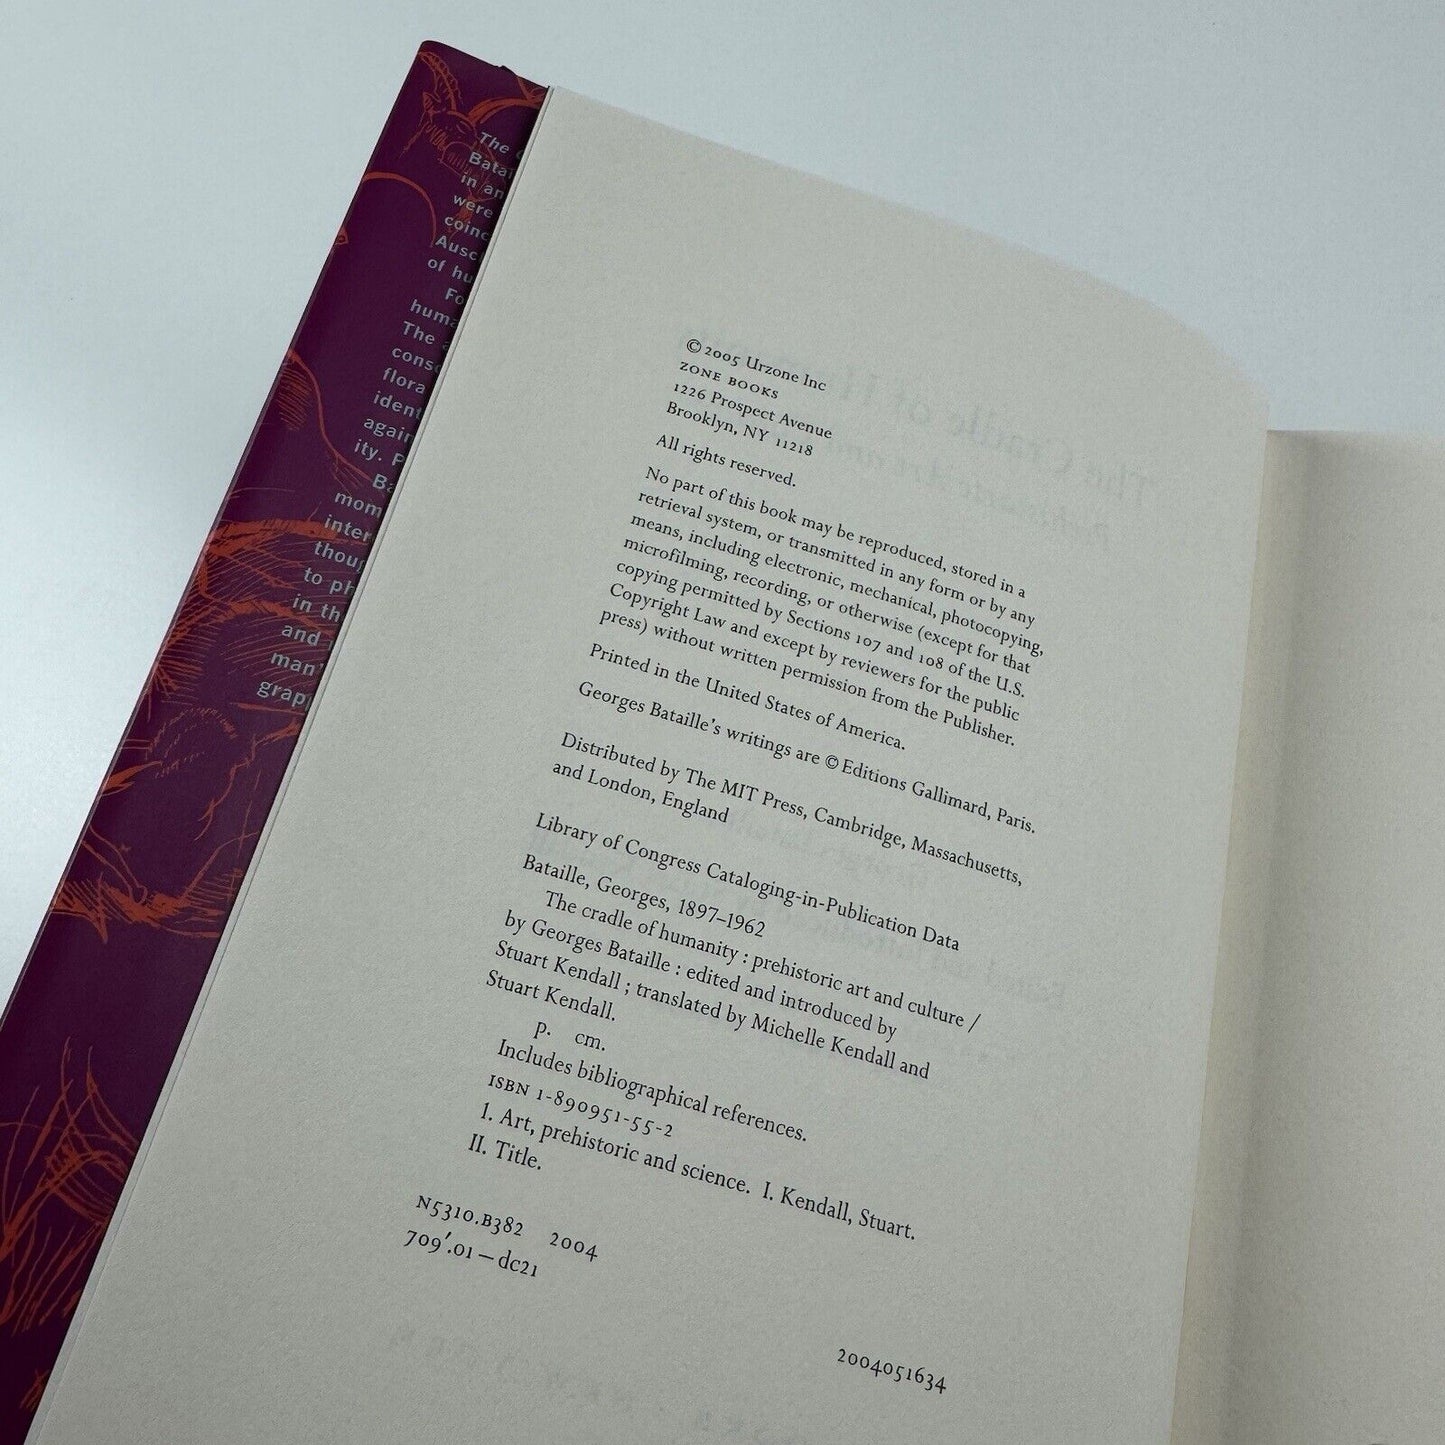 The
in an
were
of hu
The
flora
ity. P
to ph
in th
and
© 2005 Urzone Inc
ZONE BOOKS
1226 Prospect Avenue
Brooklyn, NY 11218
All rights reserved.
No part of this book may be reproduced, stored in a
retrieval system, or transmitted in any form or by any
means, including electronic, mechanical, photocopying,
microfilming, recording, or otherwise (except for that
copying permitted by Sections 107 and 108 of the U.S.
Copyright Law and except by reviewers for the public
press) without written permission from the Publisher.
Printed in the United States of America.
Georges Bataille's writings are © Editions Gallimard, Paris.
Distributed by The MIT Press, Cambridge, Massachusetts,
and London, England
Library of Congress Cataloging-in-Publication Data
Bataille, Georges, 1897–1962
The cradle of humanity : prehistoric art and culture /
by Georges Bataille : edited and introduced by
Stuart Kendall ; translated by Michelle Kendall and
Stuart Kendall.
p. cm.
Includes bibliographical references.
ISBN 1-890951-55-2
1. Art, prehistoric and science. I. Kendall, Stuart.
II. Title.
N5310.B382 2004
709'.01—dc21
2004051634